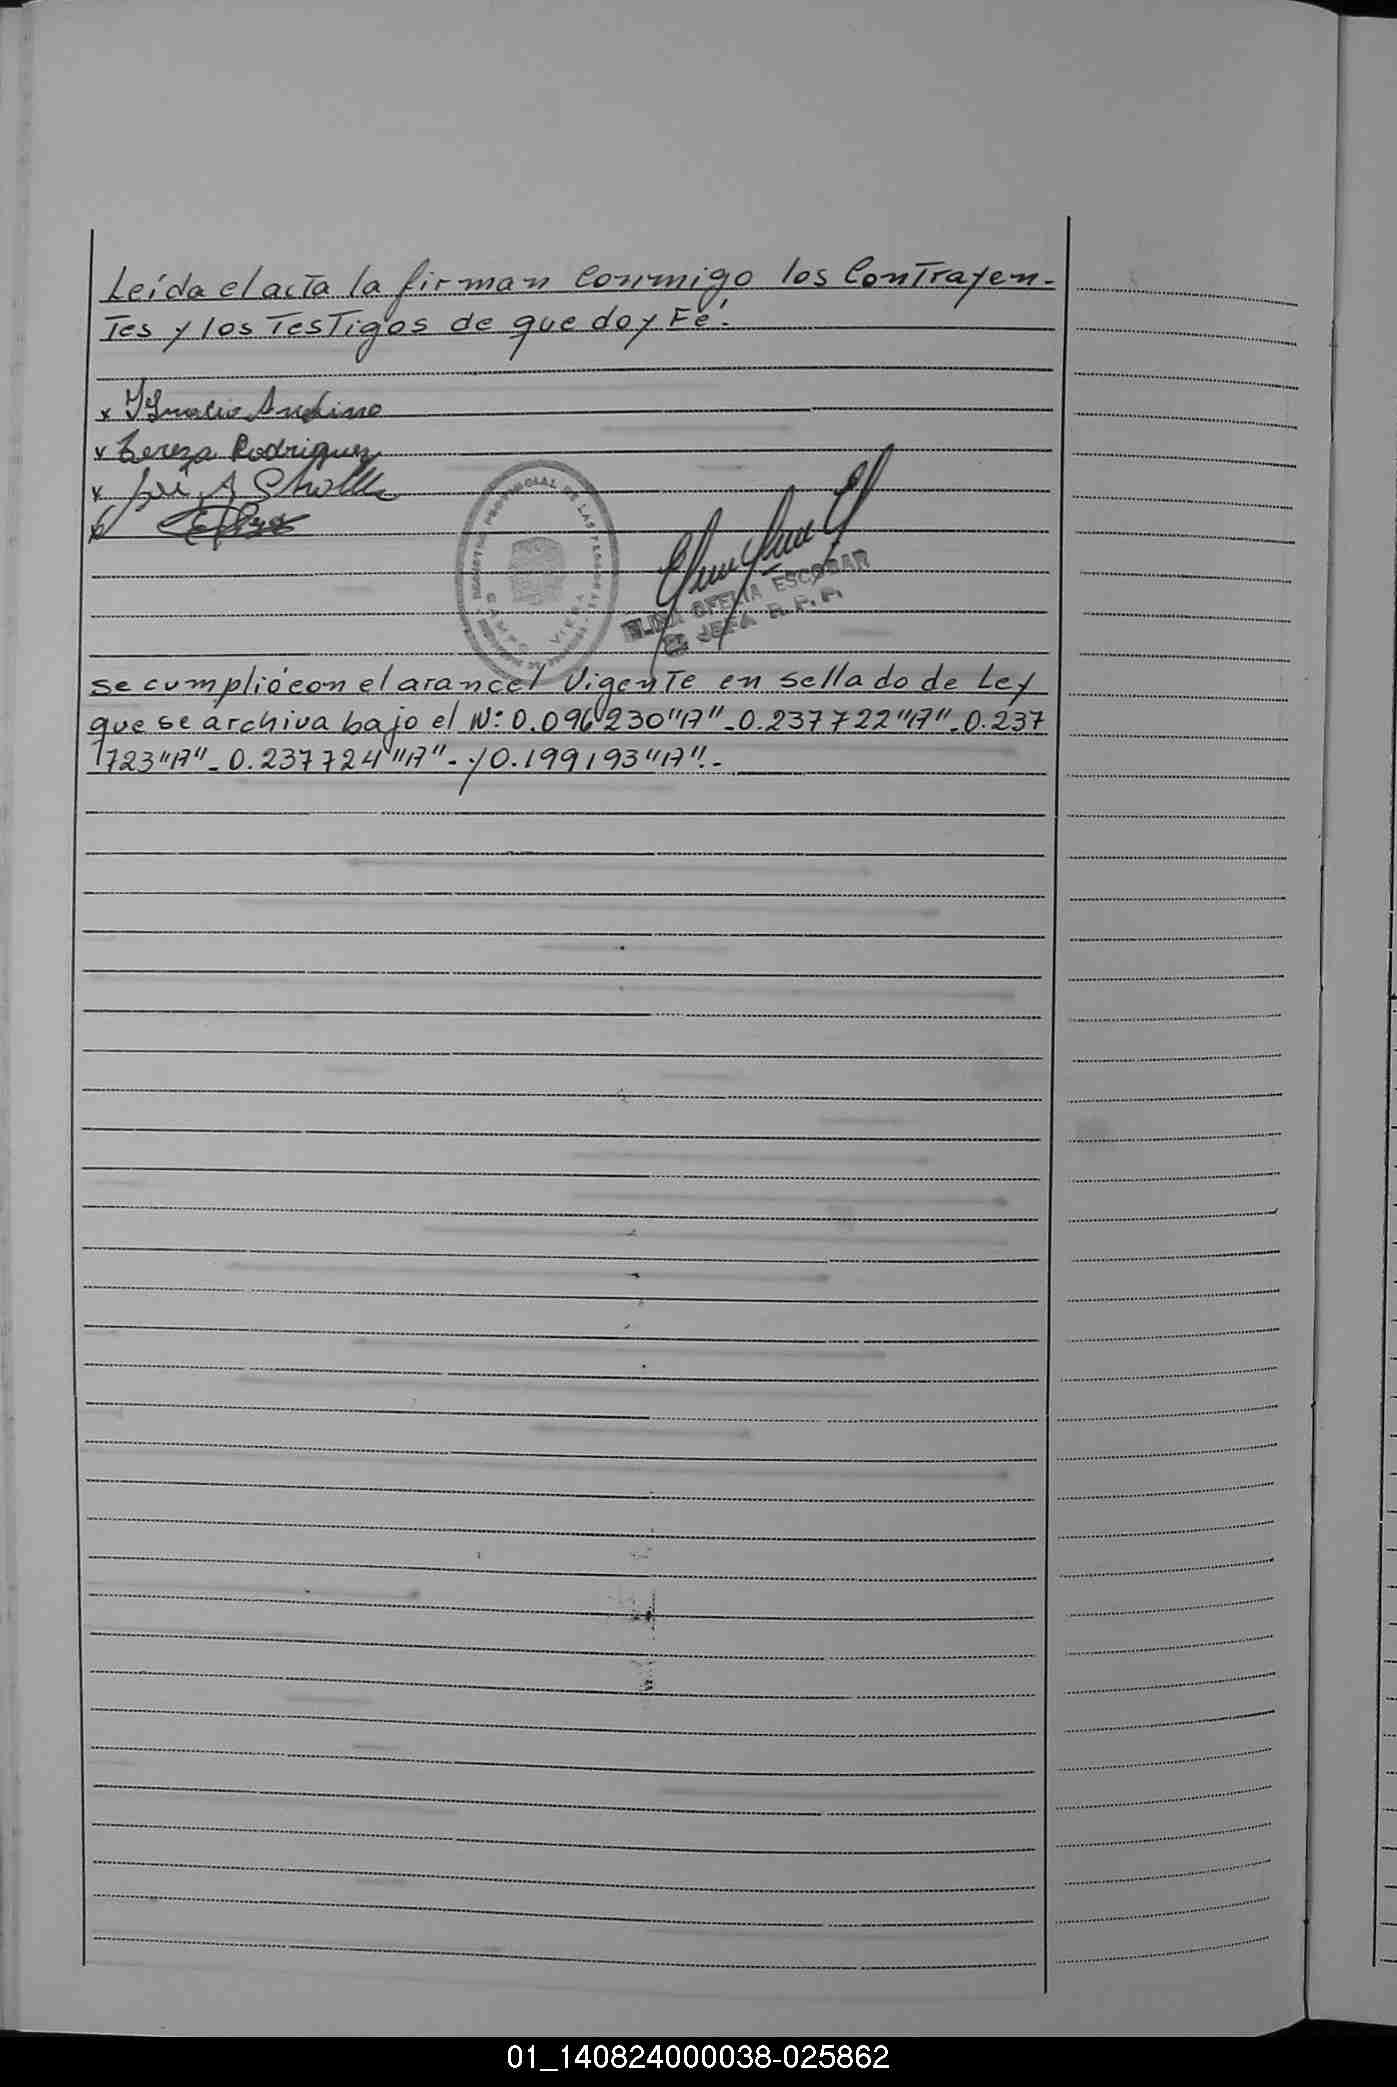 Leída el acta la firman Conmigo los Contrayen-
Tes y los Testigos de que doy Fé.
x Ygnacio Andino
x Tereza Rodriguez
x José A
REGISTRO PROVINCIAL DE LAS PERSONAS
ELIDA OFELIA ESCOBAR
JEFA R. P. P.
se cumplió con el arancel Vigente en sellado de Ley
que se archiva bajo el N: 0.096230 "A" - 0.237722 "A" - 0.237
723 "A" - 0.237724 "A" - y 0.199193 "A". -
01_140824000038-025862